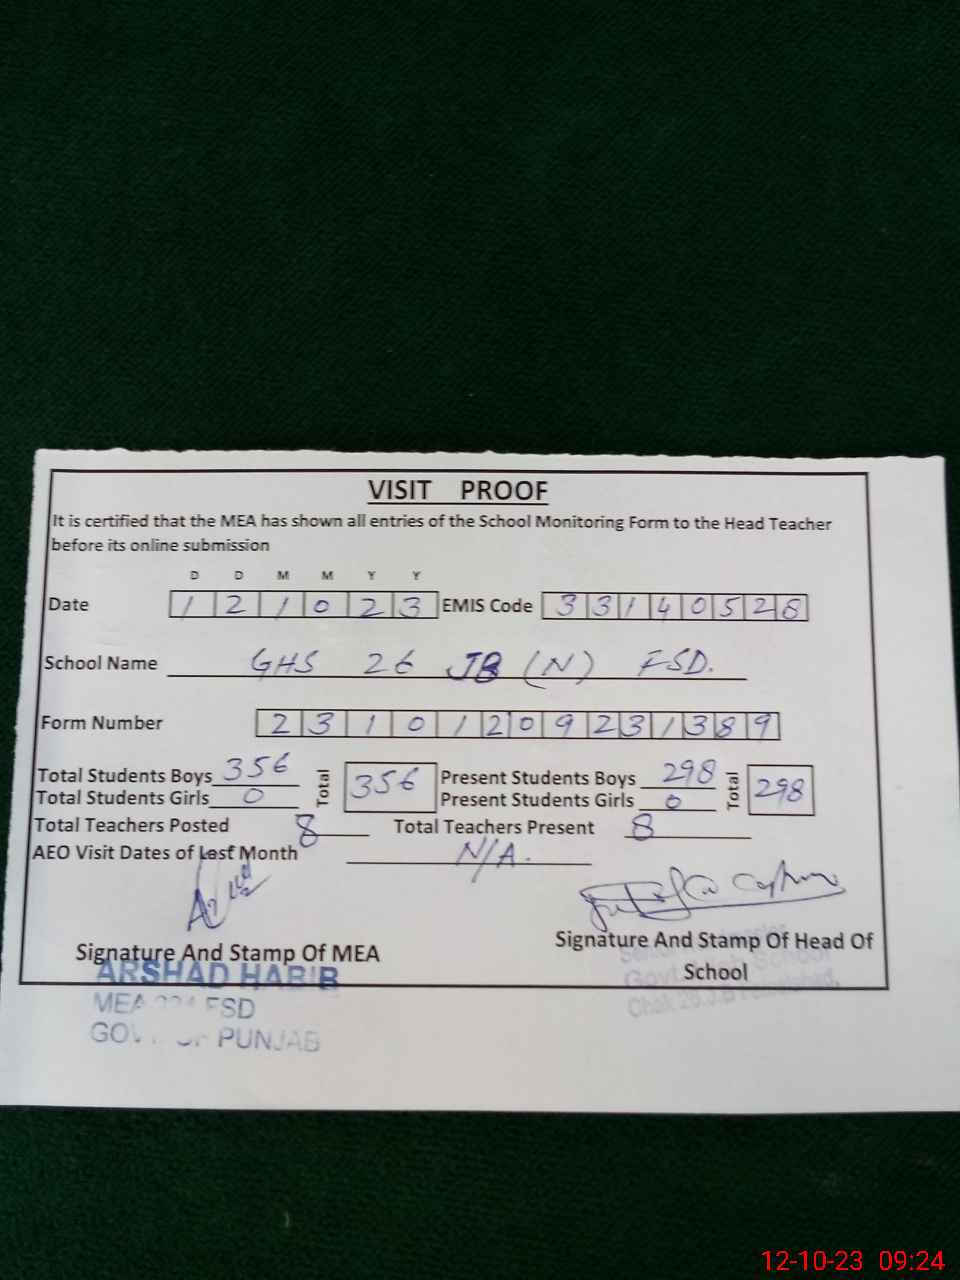 VISIT PROOF
It is certified that the MEA has shown all entries of the School Monitoring Form to the Head Teacher
before its online submission
D D M M Y Y
Date 1 2 1 0 2 3 EMIS Code 3 3 1 4 0 5 2 8
School Name GHS 26 JB (N) FSD.
Form Number 2 3 1 0 1 2 0 9 2 3 1 3 8 9
Total Students Boys 356 Total 356 Present Students Boys 298 Total 298
Total Students Girls 0 Present Students Girls 0
Total Teachers Posted 8 Total Teachers Present 8
AEO Visit Dates of Last Month N/A.
Signature And Stamp Of MEA Signature And Stamp Of Head Of
School
ARSHAD HABIB
MEA FSD
PUNJAB
Govt. High School
Chak
12-10-23 09:24